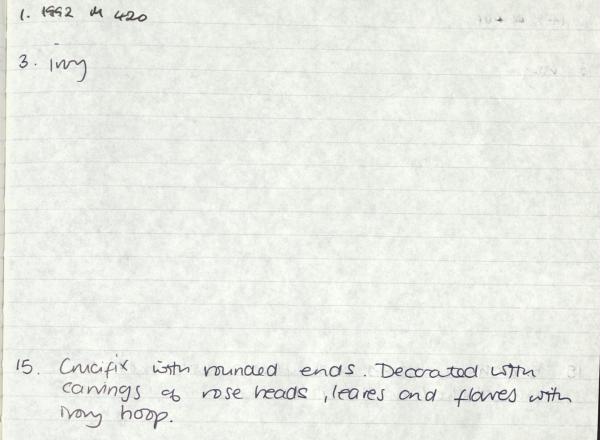 1. 1992 M 420
3. Ivory
15. Crucifix with rounded ends. Decorated with
carvings of rose heads, leaves and flowers with
ivory hoop.